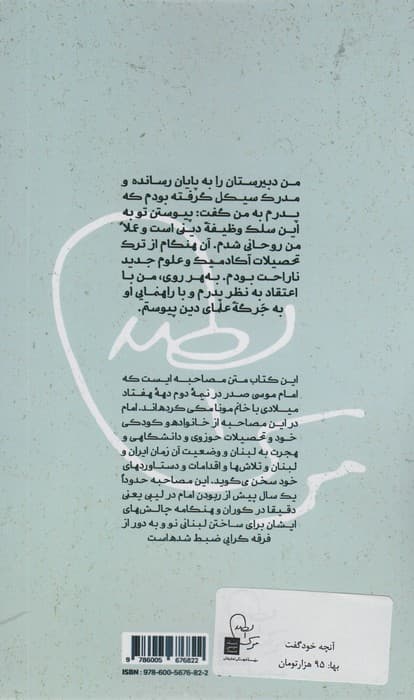 من دبیرستان را به پایان رسانده و
مدرک سیکل گرفته بودم که
پدرم به من گفت: پیوستن تو به
این سلک وظیفهٔ دینی است و عملاً
من روحانی شدم. آن هنگام از ترک
تحصیلات آکادمیک و علوم جدید
ناراحت بودم. به‌هر روی، من با
اعتقاد به نظر پدرم و با راهنمایی او
به جرگهٔ علمای دین پیوستم.
این کتاب متن مصاحبه ایست که
امام موسی صدر در نیمهٔ دوم دههٔ هفتاد
میلادی با خانم مونا مکی کرده‌اند. امام
در این مصاحبه از خانواده و کودکی
خود و تحصیلات حوزوی و دانشگاهی و
هجرت به لبنان و وضعیت آن زمان ایران و
لبنان و تلاش‌ها و اقدامات و دستاوردهای
خود سخن می‌گوید. این مصاحبه حدوداً
یک سال پیش از ربودن امام در لیبی یعنی
دقیقا در کوران و هنگامه چالش‌های
ایشان برای ساختن لبنانی نو و به دور از
فرقه گرایی ضبط شده‌است
9 786005 676822
ISBN: 978-600-5676-82-2
آنچه خود گفت
بها: ۹۵ هزارتومان